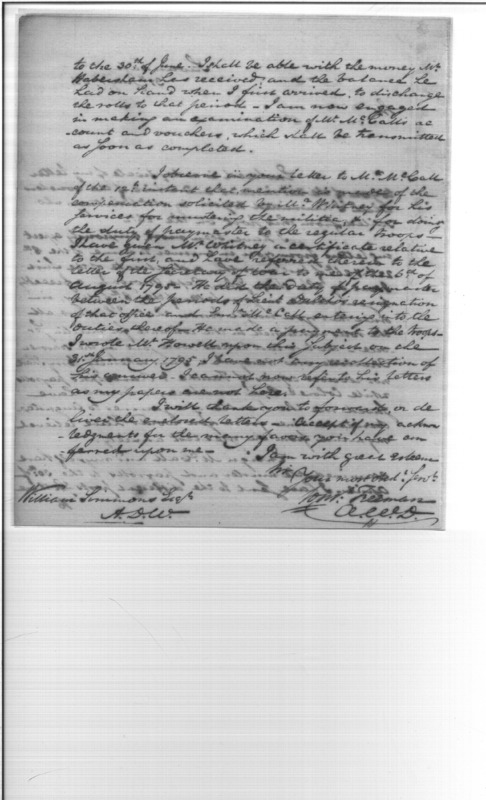 to the 30th of June. I shall be able with the money Mr
Habersham has received, and the balance he
had on hand when I first arrived, to discharge
the rolls to that period - I am now engaged
in making an examination of Mr McCalls ac
count and vouchers, which shall be transmitted
as soon as completed.
I observe in your letter to Mr McCall
of the instant that mention is made of the
compensation solicited by Mr Whitney for his
services for mustering the militia, & for doing
the duty of paymaster to the regular troops -
I have given Mr Whitney a certificate relative
to the first, and have referred therein to the
letter of the Secretary of War to me of the 6th of
August 179 He did the duty of paymaster
between the periods of resignation
of that office and McCall entering into the
duties thereof - He made a payment to the troops
I wrote Mr Howell upon this subject on the
31st January 1795, I have not any recollection of
his answer. I cannot now refer to his letters
as my papers are not here.
I will thank you to forward, or de
liver the enclosed letters - Accept of my acknow
ledgments for the many favors you have con
ferred upon me -
I am with great esteem
Sir, Your most Obd. Servt.
Freeman
A.W.D.
William Simmons Esqr.
A.D.W.